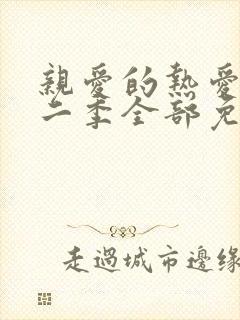 親愛的熱愛
二季全部免
走過城市邊緣